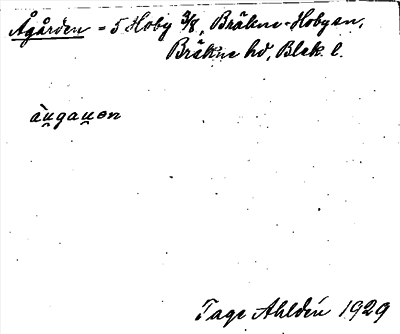 Ågården = 5 Hoby 4/8, Bräkne-Hoby sn,
Bräkne hd, Blek. l.
Tage Ahldén 1929